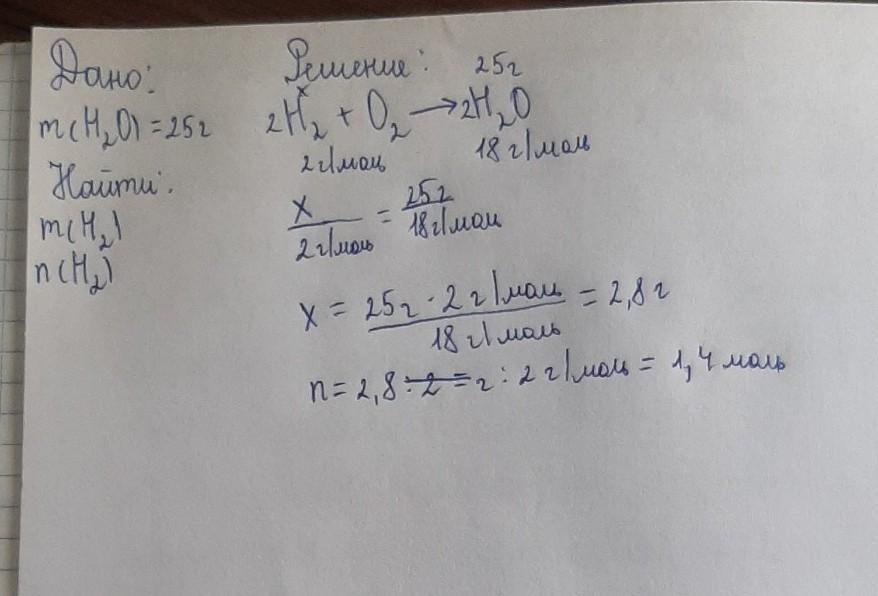 Дано:
m(H₂O) = 25г
Найти:
m(H₂)
n(H₂)
Решение:
x 25г
2H₂ + O₂ → 2H₂O
2г/моль 18 г/моль
x / 2г/моль = 25г / 18г/моль
x = 25г · 2 г/моль / 18 г/моль = 2,8 г
n = 2,8 : 2 = г : 2 г/моль = 1,4 моль